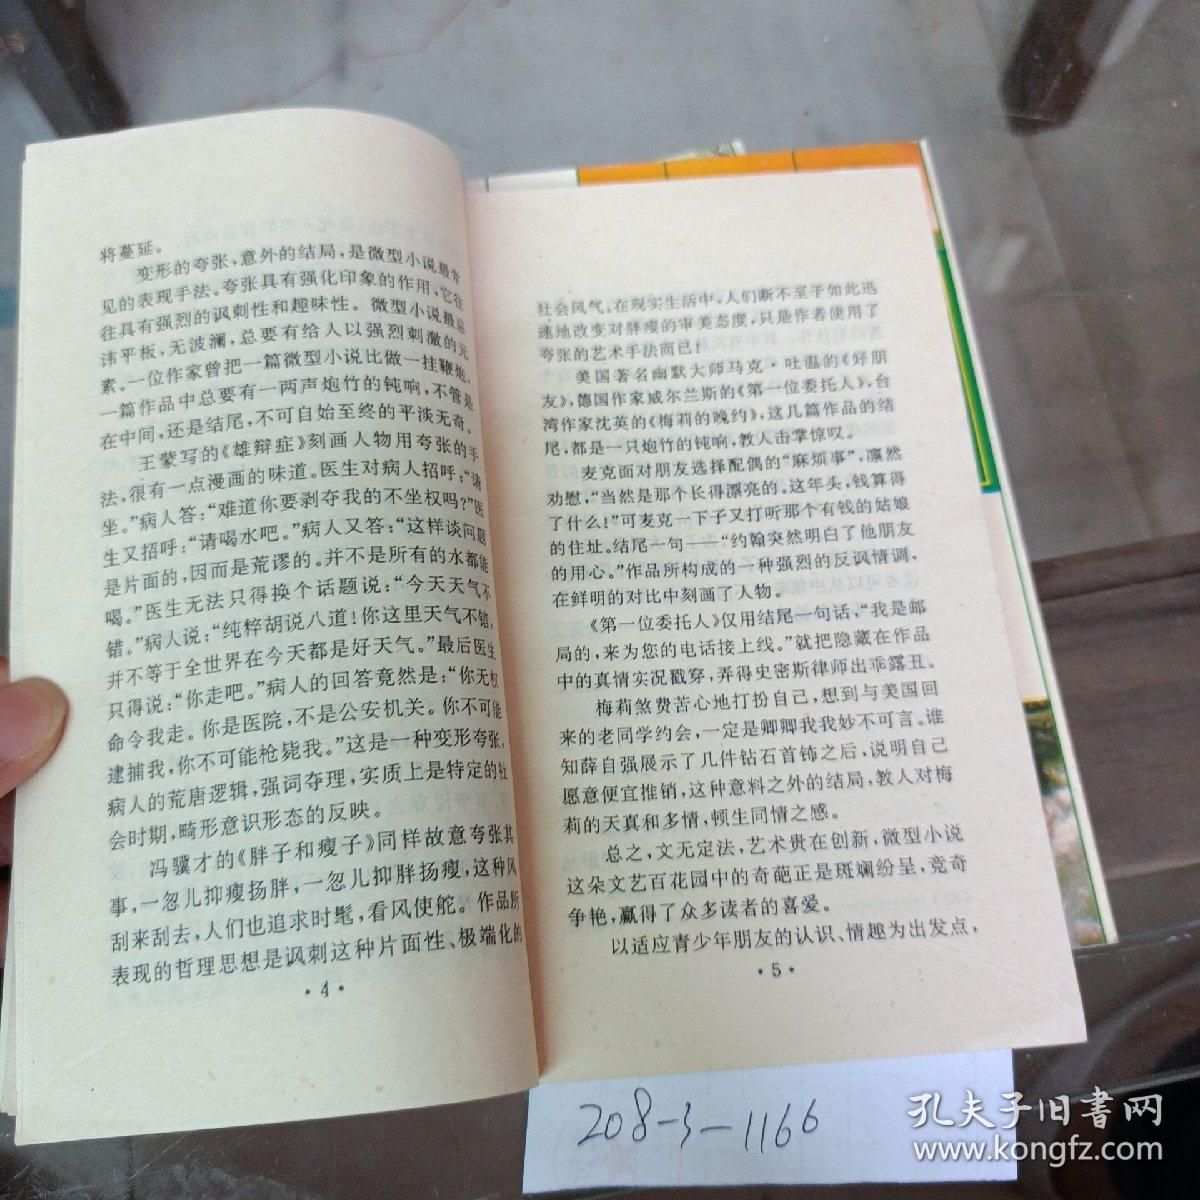 将蔓延。
变形的夸张,意外的结局,是微型小说最常
见的表现手法。夸张具有强化印象的作用,它往
往具有强烈的讽刺性和趣味性。微型小说最忌
讳平板,无波澜,总要有给人以强烈刺激的元
素。一位作家曾把一篇微型小说比做一挂鞭炮,
一篇作品中总要有一两声炮竹的钝响,不管是
在中间,还是结尾,不可自始至终的平淡无奇。
王蒙写的《雄辩症》刻画人物用夸张的手
法,很有一点漫画的味道。医生对病人招呼:“请
坐。”病人答:“难道你要剥夺我的不坐权吗?”医
生又招呼:“请喝水吧。”病人又答:“这样谈问题
是片面的,因而是荒谬的。并不是所有的水都能
喝。”医生无法只得换个话题说:“今天天气不
错。”病人说:“纯粹胡说八道!你这里天气不错,
并不等于全世界在今天都是好天气。”最后医生
只得说:“你走吧。”病人的回答竟然是:“你无权
命令我走。你是医院,不是公安机关。你不可能
逮捕我,你不可能枪毙我。”这是一种变形夸张,
病人的荒唐逻辑,强词夺理,实质上是特定的社
会时期,畸形意识形态的反映。
冯骥才的《胖子和瘦子》同样故意夸张其
事,一忽儿抑瘦扬胖,一忽儿抑胖扬瘦,这种风
刮来刮去,人们也追求时髦,看风使舵。作品所
表现的哲理思想是讽刺这种片面性、极端化的
·4·
社会风气。在现实生活中,人们断不至于如此迅
速地改变对胖瘦的审美态度,只是作者使用了
夸张的艺术手法而已!
美国著名幽默大师马克·吐温的《好朋
友》,德国作家威尔兰斯的《第一位委托人》,台
湾作家沈英的《梅莉的晚约》,这几篇作品的结
尾,都是一只炮竹的钝响,教人击掌惊叹。
麦克面对朋友选择配偶的“麻烦事”,凛然
劝慰,“当然是那个长得漂亮的。这年头,钱算得
了什么!”可麦克一下子又打听那个有钱的姑娘
的住址。结尾一句——“约翰突然明白了他朋友
的用心。”作品所构成的一种强烈的反讽情调,
在鲜明的对比中刻画了人物。
《第一位委托人》仅用结尾一句话,“我是邮
局的,来为您的电话接上线。”就把隐藏在作品
中的真情实况戳穿,弄得史密斯律师出乖露丑。
梅莉煞费苦心地打扮自己,想到与美国回
来的老同学约会,一定是卿卿我我妙不可言。谁
知薛自强展示了几件钻石首饰之后,说明自己
愿意便宜推销,这种意料之外的结局,教人对梅
莉的天真和多情,顿生同情之感。
总之,文无定法,艺术贵在创新,微型小说
这朵文艺百花园中的奇葩正是斑斓纷呈,竞奇
争艳,赢得了众多读者的喜爱。
以适应青少年朋友的认识、情趣为出发点,
·5·
208-3-1166
孔夫子旧书网
www.kongfz.com